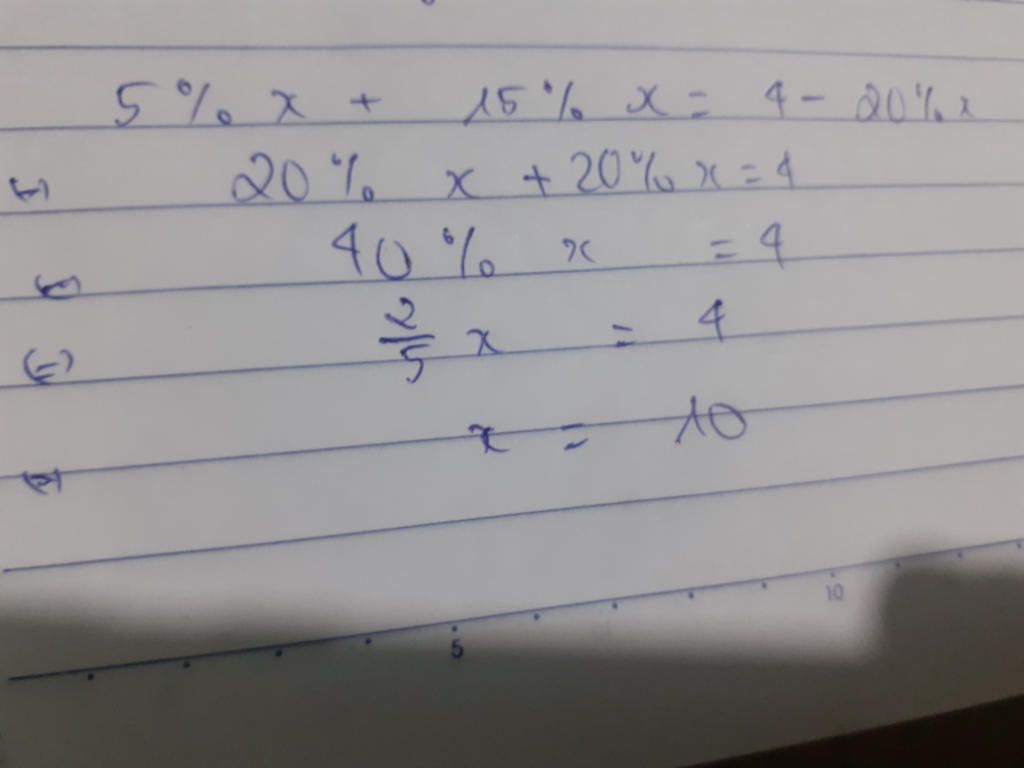 5% x + 15% x = 4 - 20% x
(=) 20% x + 20% x = 4
(=) 40% x = 4
(=) 2/5 x = 4
(=) x = 10
5 10